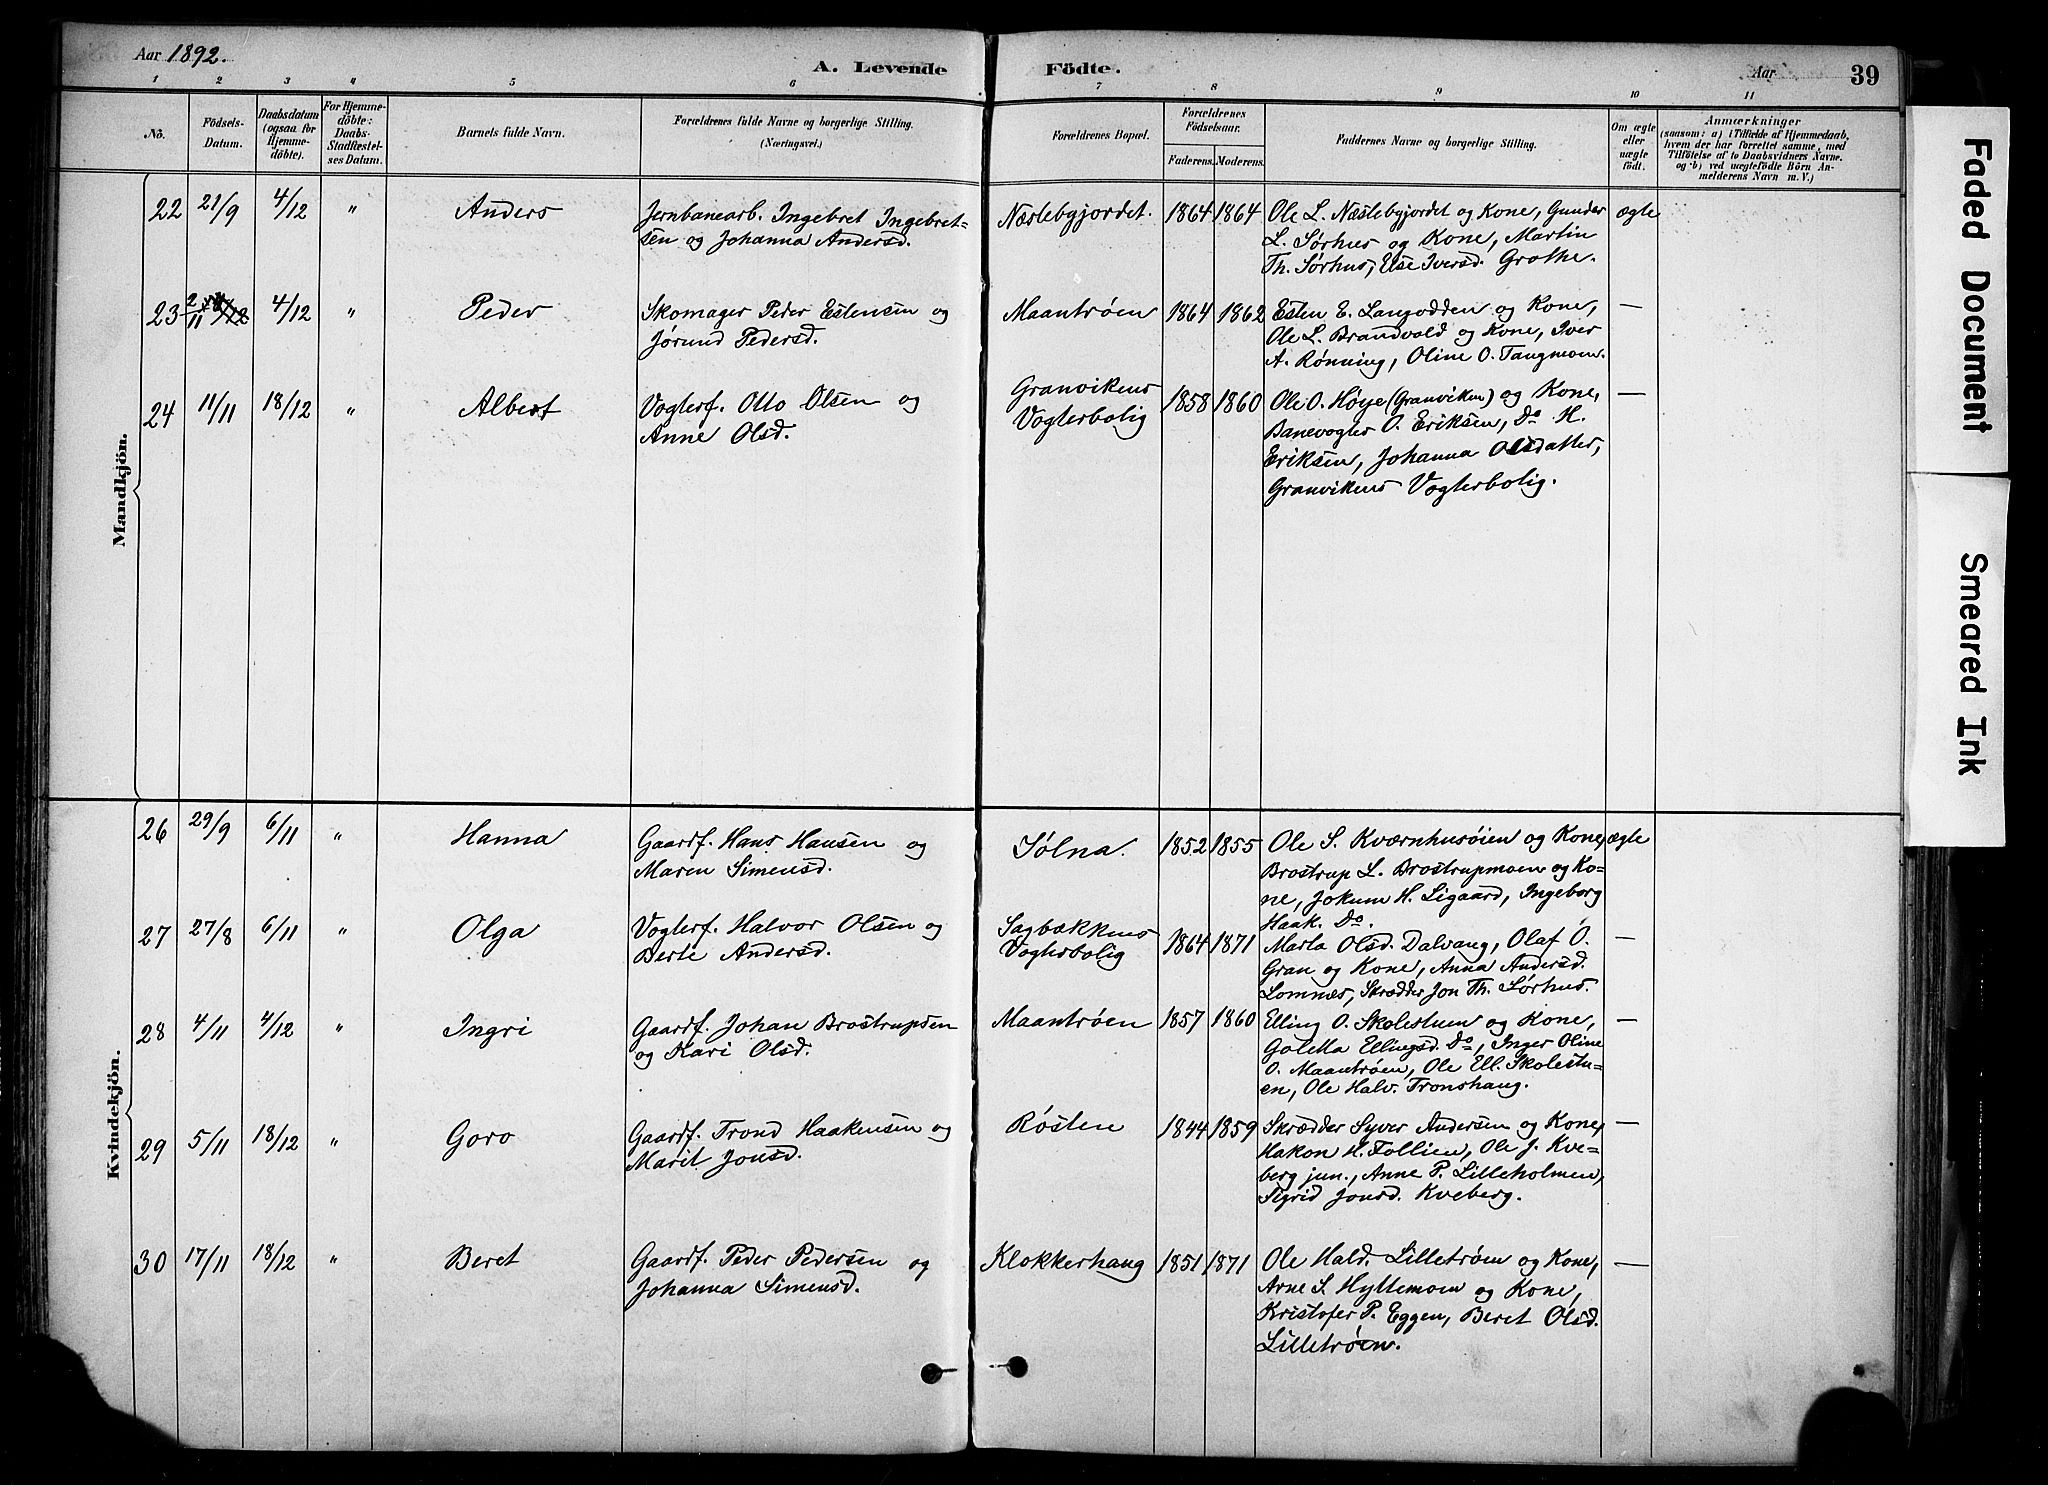 Aar 1892.
A. Levende Födte.
Aar
39
1 2 3 4 5 6 7 8 9 10 11
No.
Födsels-Datum.
Daabsdatum (ogsaa for Hjemme-döbte).
For Hjemme-döbte: Daabs-Stadfæstel-ses Datum.
Barnets fulde Navn.
Forældrenes fulde Navne og borgerlige Stilling.
(Næringsvei.)
Forældrenes Bopæl.
Forældrenes Födselsaar.
Faderens. Moderens.
Faddernes Navne og borgerlige Stilling.
Om ægte eller uægte födt.
Anmærkninger
(saasom: a) i Tilfælde af Hjemmedaab,
hvem der har forrettet samme, med
Tilföielse af to Daabsvidners Navne.
og b) ved uægtefödte Börn An-
melderens Navn m. V.)
Mandkjön.
22 21/9 4/12 " Anders
Jernbanearb. Ingebret Ingebret-
sen og Johanna Andersd.
Næslebgjordet. 1864 1864
Ole L. Næslebgjordet og Kone, Gunder
L. Sørhus og Kone, Martin
Th. Sørhus, Else Iversd. Grothe.
ægte
23 2/11 4/12 " Peder
Skomager Peder Estensen og
Jørund Pedersd.
Maantrøen 1864 1862
Esten E. Langodden og Kone,
Ole L. Brandvold og Kone, Iver
A. Rønning, Oline O. Tangmoen.
—
24 11/11 18/12 " Albert
Vogterf. Otto Olsen og
Anne Olsd.
Granvikens
Vogterbolig
1858 1860
Ole O. Høye (Granviken) og Kone,
Banevogter O. Eriksen, Do H.
Eriksen, Johanna Olsdatter,
Granvikens Vogterbolig.
—
Kvindekjön.
26 29/9 6/11 " Hanna
Gaardf. Hans Hansen og
Maren Simensd.
Sølna. 1852 1855
Ole S. Kværnhusøien og Kone,
Brostrup L. Brostrupmoen og Ko-
ne, Jokum H. Ligaard, Ingeborg
Haak. Do.
ægte
27 27/8 6/11 " Olga
Vogterf. Halvor Olsen og
Berte Andersd.
Sagbækkens
Vogterbolig
1864 1871
Marta Olsd. Dalvang, Olaf O.
Gran og Kone, Anna Andersd.
Lomnæs, Skrædder Jon Th. Sørhus.
—
28 4/11 4/12 " Ingri
Gaardf. Johan Brostrupsen
og Kari Olsd.
Maantrøen 1857 1860
Elling O. Skolestuen og Kone,
Goletta Ellingsd. Do, Inger Oline
O. Maantrøen, Ole Ell. Skolestu-
en, Ole Halv. Tronshaug.
—
29 5/11 18/12 " Goro
Gaardf. Trond Haakensen og
Marit Jonsd.
Røsten 1844 1859
Skrædder Syver Andersen og Kone,
Hakon H. Follien, Ole J. Kve-
berg jun., Anne P. Lilleholmen,
Sigrid Jonsd. Kveberg.
—
30 17/11 18/12 " Beret
Gaardf. Peder Pedersen og
Johanna Simensd.
Klokkerhaug 1851 1871
Ole Hald. Lilletrøen og Kone,
Arne S. Hyttemoen og Kone,
Kristofer P. Eggen, Beret Olsd.
Lilletrøen.
—
Faded Document
Smeared Ink